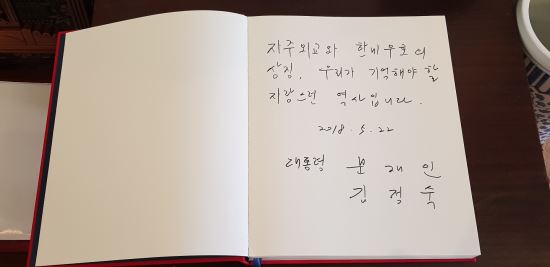 자주외교와 한미우호의
상징, 우리가 기억해야할
자랑스런 역사입니다.
2018. 5. 22
대통령 문 재 인
김 정 숙